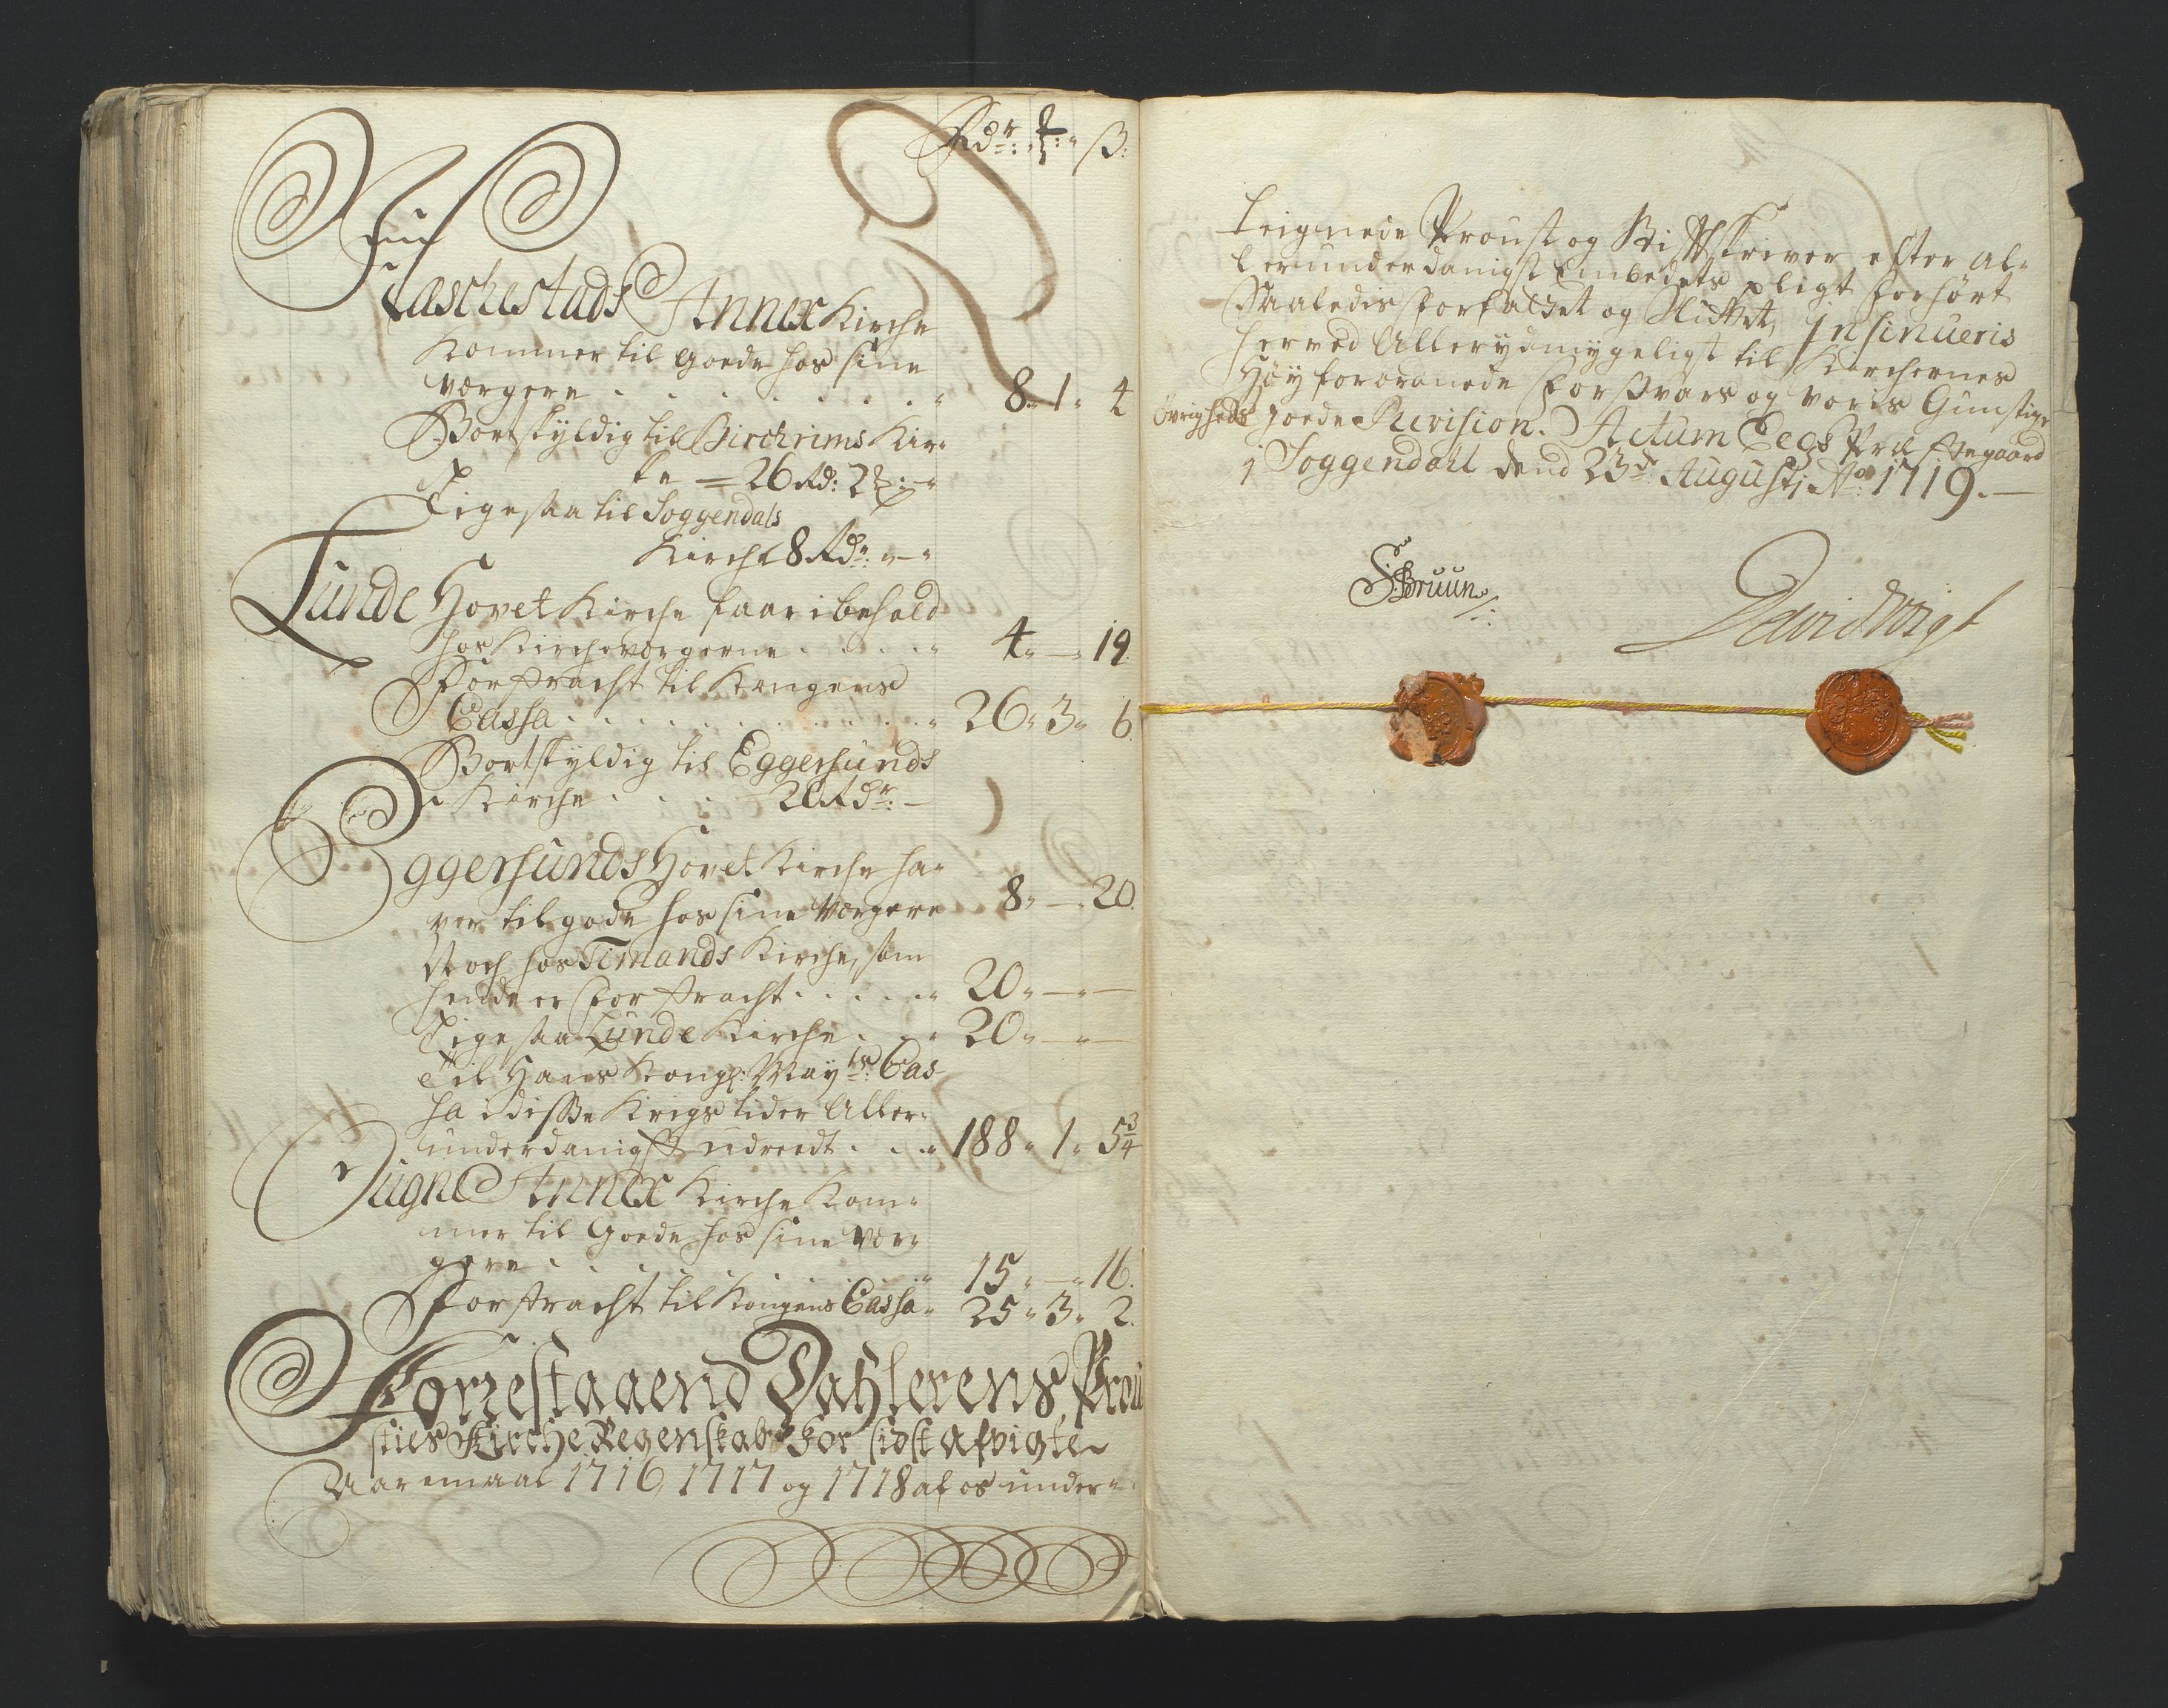 Rdr: ꝶ: β:
Hæschestads Annex Kirche
Kommer til goede hos sine
værgere . . . . . . . 8 " 1 " 4
Bortskyldig til Birchrims Kir-
ke = 26 Rd: 2 ꝶ: "
Ligesaa til Soggendals
Kirche 8 Rdr: " - "
Lunde Hovet Kirche haar i behold
hos Kircheværgerne . . . . 4 " — " 19
Forstracht til Kongens
Cassa . . . . . . . . 26 " 3 " 6
Bortskyldig til Eggersunds
Kirche . . . 20 Rdr: —
Eggersunds Hovet Kirche ha-
ver til gode hos sine Værgere 8 " — " 20
Noch hos Timands Kirche, som
hende er forstracht . . . . 20 " — " —
Ligesaa Lunde Kirche . . 20 " — " —
Til Hans Kongl: Mayts: Cas-
sa i disse Krigs tider Aller-
underdanigst udreedt . . . 188 " 1 " 5¾
Fugne Annex Kirche Kom-
mer til Goede hos sine Vær-
gere . . . . . . 15 " — " 16
Forstracht til Kongens Cassa " 25 " 3 " 2
Forrestaaend Dahlerens Prou
sties Kirche Regenskab for sidst afvigte
Aaremaal 1716, 1717 og 1718 af os under-
teignede Proust og Stifftskriver efter al-
lerunderdanigst Embedets pligt forhørt
Saaledis forfattet og Sluttet, Insinueris
herved Allerydmygeligst til Kirchernes
Høyforordnede Forsvars og voris Gunstige
Øvrigheds goede Revision. Actum Eegs Præstegaard
i Soggendahl dend 23de Augusti Ao: 1719. —
S: Bruun
David Voigt